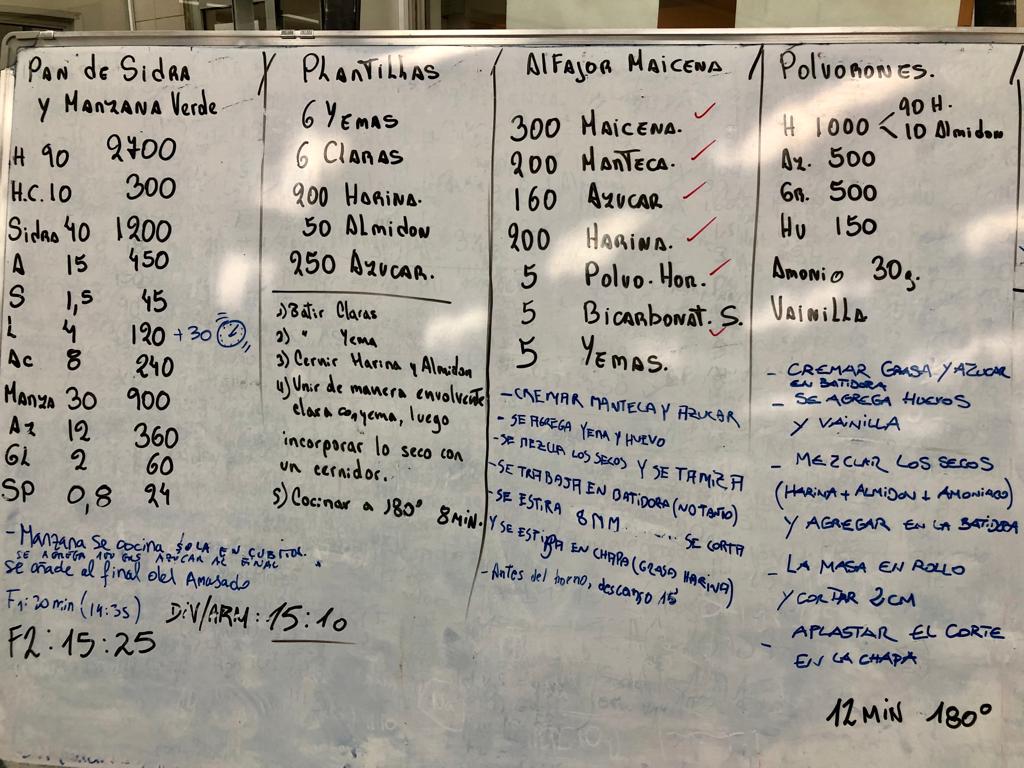 Pan de Sidra
y Manzana Verde
H 90 2700
H.C. 10 300
Sidra 40 1200
A 15 450
S 1,5 45
L 4 120 + 30
Ac 8 240
Manza 30 900
Az 12 360
GL 2 60
SP 0,8 24
- Manzana se cocina sola en cubitos.
se agrega 100 grs azucar al final
se añade al final del Amasado
F1: 30 min (14:35)
Div/ARM: 15:10
F2: 15:25
Plantillas
6 Yemas
6 Claras
200 Harina.
50 Almidon
250 Azucar.
1) Batir Claras
2) " Yema
3) Cernir Harina y Almidon
4) Unir de manera envolvente
clara con yema, luego
incorporar lo seco con
un cernidor.
5) Cocinar a 180° 8 min.
Alfajor Maicena
300 Maicena.
200 Manteca.
160 Azucar
200 Harina.
5 Polvo. Hor.
5 Bicarbonat. S.
5 Yemas.
- Cremar manteca y azucar
- Se agrega yema y huevo
- Se mezcla los secos y se tamiza
- Se trabaja en batidora (no tanto)
- Se estira 8 mm .... se corta
y se estiba en chapa (grasa harina)
- Antes del horno, descanso 15'
Polvorones.
H 1000 < 90 H.
10 Almidon
Az. 500
Gr. 500
Hu 150
Amonio 30 g.
Vainilla
- Cremar grasa y azucar
en batidora
- Se agrega huevos
y vainilla
- Mezclar los secos
(Harina + Almidon + Amoniaco)
y agregar en la batidora
- La masa en rollo
y cortar 2 cm
- Aplastar el corte
en la chapa
12 min 180°